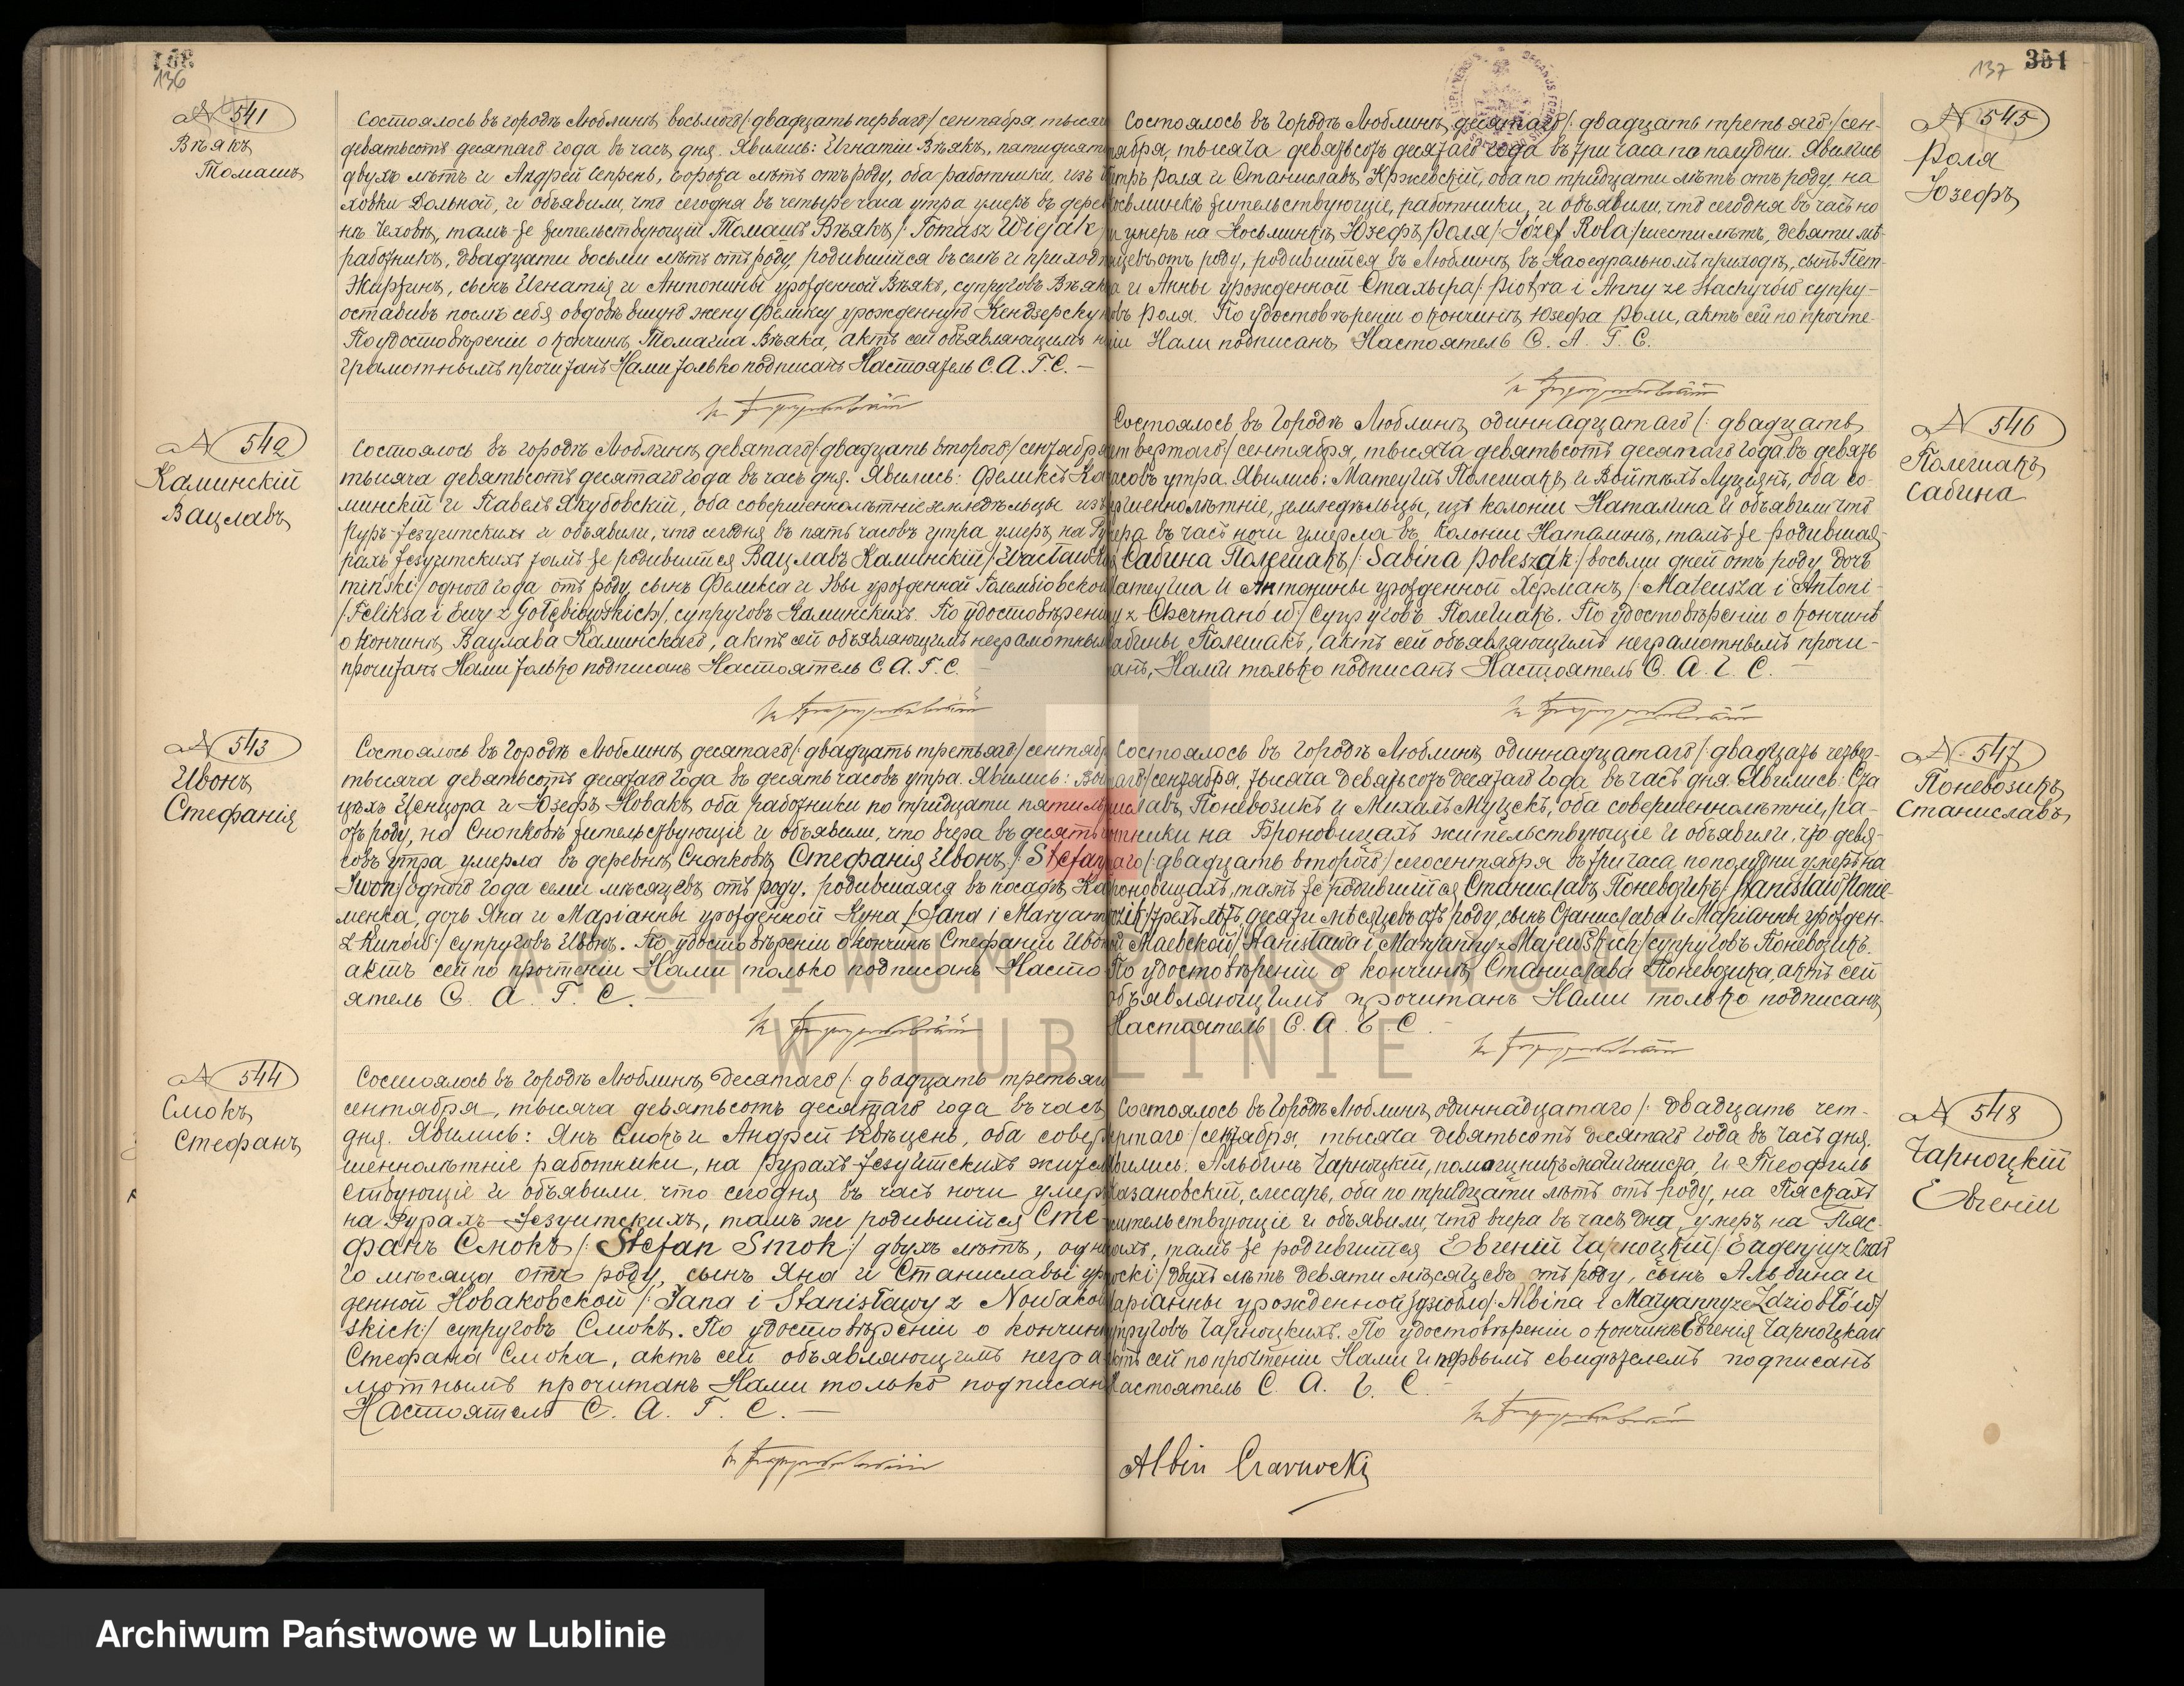 136
№ 541
Вѣякъ
Томашъ
Состоялось въ городѣ Люблинѣ восьмого /: двадцать перваго / сентября тысяча
девятьсотъ десятаго года въ часъ дня. Явились: Игнатій Вѣякъ, пятидесяти
двухъ лѣтъ и Андрей Цепрень, сорока лѣтъ отъ роду, оба работники, изъ
ховки Дольной, и объявили, что сегодня въ четыре часа утра умеръ въ дерев
нѣ Чеховкѣ, тамъ же жительствующій Томашъ Вѣякъ /: Tomasz Wiejak
работникъ, двадцати восьми лѣтъ отъ роду, родившійся въ селѣ и приходѣ
сынъ Игнатія и Антонины урожденной Вѣякъ, супруговъ Вѣякъ
оставивъ послѣ себя овдовѣвшую жену Феликсу урожденную
По удостовѣреніи о кончинѣ Томаша Вѣяка, актъ сей объявляющимъ не
грамотнымъ прочитанъ Нами только подписанъ Настоятель С. А. Г. С. —
№ 542
Каминскій
Вацлавъ
Состоялось въ городѣ Люблинѣ девятаго / двадцать второго / сентября
тысяча девятьсотъ десятаго года въ часъ дня. Явились: Феликсъ Ка
минскій и Павелъ Якубовскій, оба совершеннолѣтніе земледѣльцы изъ
Руръ-Іезуитскихъ и объявили, что сегодня въ пять часовъ утра умеръ на Ру
рахъ Іезуитскихъ тамъ же родившійся Вацлавъ Каминскій / Wacław Ka
miński / одного года отъ роду, сынъ Феликса и Эвы урожденной Голембіовской
/ Feliksa i Ewy z Gołębiowskich /, супруговъ Каминскихъ. По удостовѣреніи
о кончинѣ Вацлава Каминскаго, актъ сей объявляющимъ неграмотнымъ
прочитанъ Нами только подписанъ Настоятель С. А. Г. С.
№ 543
Ивонъ
Стефанія
Состоялось въ городѣ Люблинѣ десятаго /: двадцать третьяго / сентября
тысяча девятьсотъ десятаго года въ десять часовъ утра. Явились: Вой
цѣхъ Ценцора и Юзефъ Новакъ оба работники по тридцати пяти лѣ
отъ роду, на Снопковѣ жительствующіе и объявили, что вчера въ десять ча
совъ утра умерла въ деревнѣ Снопковѣ Стефанія Ивонъ /: Stefan
Iwon / одного года семи мѣсяцевъ отъ роду, родившаяся въ посадѣ Ка
менка, дочь Яна и Маріанны урожденной Куна / Jana i Maryann
z Kunów / супруговъ Ивонъ. По удостовѣреніи о кончинѣ Стефаніи Ивон
актъ сей по прочтеніи Нами только подписанъ Насто
ятель С. А. Г. С. —
№ 544
Смокъ
Стефанъ
Состоялось въ городѣ Люблинѣ десятаго /: двадцать третьяго
сентября, тысяча девятьсотъ десятаго года въ часъ
дня. Явились: Янъ Смокъ и Андрей Квѣцень, оба совер
шеннолѣтніе работники, на Рурахъ-Іезуитскихъ житель
ствующіе и объявили, что сегодня въ часъ ночи умеръ
на Рурахъ-Іезуитскихъ, тамъ же родившійся Сте
фанъ Смокъ /: Stefan Smok :/ двухъ лѣтъ, одно
го мѣсяца отъ роду, сынъ Яна и Станиславы уро
денной Новаковской / Jana i Stanisławy z Nowakow
skich :/ супруговъ Смокъ. По удостовѣреніи о кончинѣ
Стефана Смока, актъ сей объявляющимъ негра
мотнымъ прочитанъ Нами только подписанъ
Настоятель С. А. Г. С. —
137 351
№ 545
Роля
Юзефъ
Состоялось въ городѣ Люблинѣ десятаго /: двадцать третьяго / сен-
тября, тысяча девятьсотъ десятаго года въ три часа по полудни. Явились
Петръ Роля и Станиславъ Кржевскій, оба по тридцати лѣтъ отъ роду, на
Косьминкѣ жительствующіе, работники, и объявили, что сегодня въ часъ но
чи умеръ на Косьминкѣ Юзефъ Роля / Józef Rola / шести лѣтъ, девяти мѣ-
сяцевъ отъ роду, родившійся въ Люблинѣ въ Каѳедральномъ приходѣ, сынъ Пет-
ра и Анны урожденной Стахыра /: Piotra i Anny ze Stachyrów супру-
говъ Роля. По удостовѣреніи о кончинѣ Юзефа Роли, актъ сей по прочте-
ніи Нами подписанъ Настоятель С. А. Г. С.
№ 546
Полешакъ
Сабина
Состоялось въ Городѣ Люблинѣ одиннадцатаго /: двадцать
четвертаго / сентября, тысяча девятьсотъ десятаго года въ девять
часовъ утра. Явились: Матеушъ Полешакъ и Войтѣхъ Луцянъ, оба со-
вершеннолѣтніе, земледѣльцы, изъ колоніи Наталина и объявили что
вчера въ часъ ночи умерла въ Колоніи Наталинъ, тамъ же родившая
ся Сабина Полешакъ /: Sabina Poleszak / восьми дней отъ роду дочь
Матеуша и Антонины урожденной Херманъ /: Mateusza i Antoni-
ny z Chermanów / супруговъ Полешакъ. По удостовѣреніи о кончинѣ
Сабины Полешакъ, актъ сей объявляющимъ неграмотнымъ прочи-
танъ, Нами только подписанъ Настоятель С. А. Г. С. —
№ 547
Поневозикъ
Станиславъ
Состоялось въ городѣ Люблинѣ одиннадцатаго / двадцать четвер-
таго / сентября, тысяча девятьсотъ десятаго года въ часъ дня. Явились: Ста
ниславъ Поневозикъ и Михалъ Муцекъ, оба совершеннолѣтніе, ра-
ботники на Броновицахъ жительствующіе и объявили, что девя-
таго /: двадцать второго / сего сентября въ три часа пополудни умеръ на
Броновицахъ, тамъ же родившійся Станиславъ Поневозикъ / Stanisław Ponie-
wozik / трехъ лѣтъ, десяти мѣсяцевъ отъ роду, сынъ Станислава и Маріанны урожден-
ной Маевской / Stanisława i Maryanny z Majewskich / супруговъ Поневозикъ.
По удостовѣреніи о кончинѣ Станислава Поневозика, актъ сей
объявляющимъ прочитанъ Нами только подписанъ
Настоятель С. А. Г. С. —
№ 548
Чарноцкій
Евгеній
Состоялось въ городѣ Люблинѣ одиннадцатаго /: двадцать чет-
вертаго / сентября, тысяча девятьсотъ десятаго года въ часъ дня.
Явились. Альбинъ Чарноцкій, помощникъ машиниста, и Теофиль
Казановскій, слесарь, оба по тридцати лѣтъ отъ роду, на Пяскахъ
жительствующіе и объявили, что вчера въ часъ дня умеръ на Пяс-
кахъ, тамъ же родившійся Евгеній Чарноцкій / Eugenjusz Czar
nocki / двухъ лѣтъ девяти мѣсяцевъ отъ роду, сынъ Альбина и
Маріанны урожденной Здзіобло /: Albina i Maryanny ze Zdziobłów /
супруговъ Чарноцкихъ. По удостовѣреніи о кончинѣ Евгенія Чарноцкаго
актъ сей по прочтеніи Нами и первымъ свидѣтелемъ подписанъ
Настоятель С. А. Г. С. —
Albin Czarnocki
ARCHIWUM PAŃSTWOWE
W LUBLINIE
Archiwum Państwowe w Lublinie